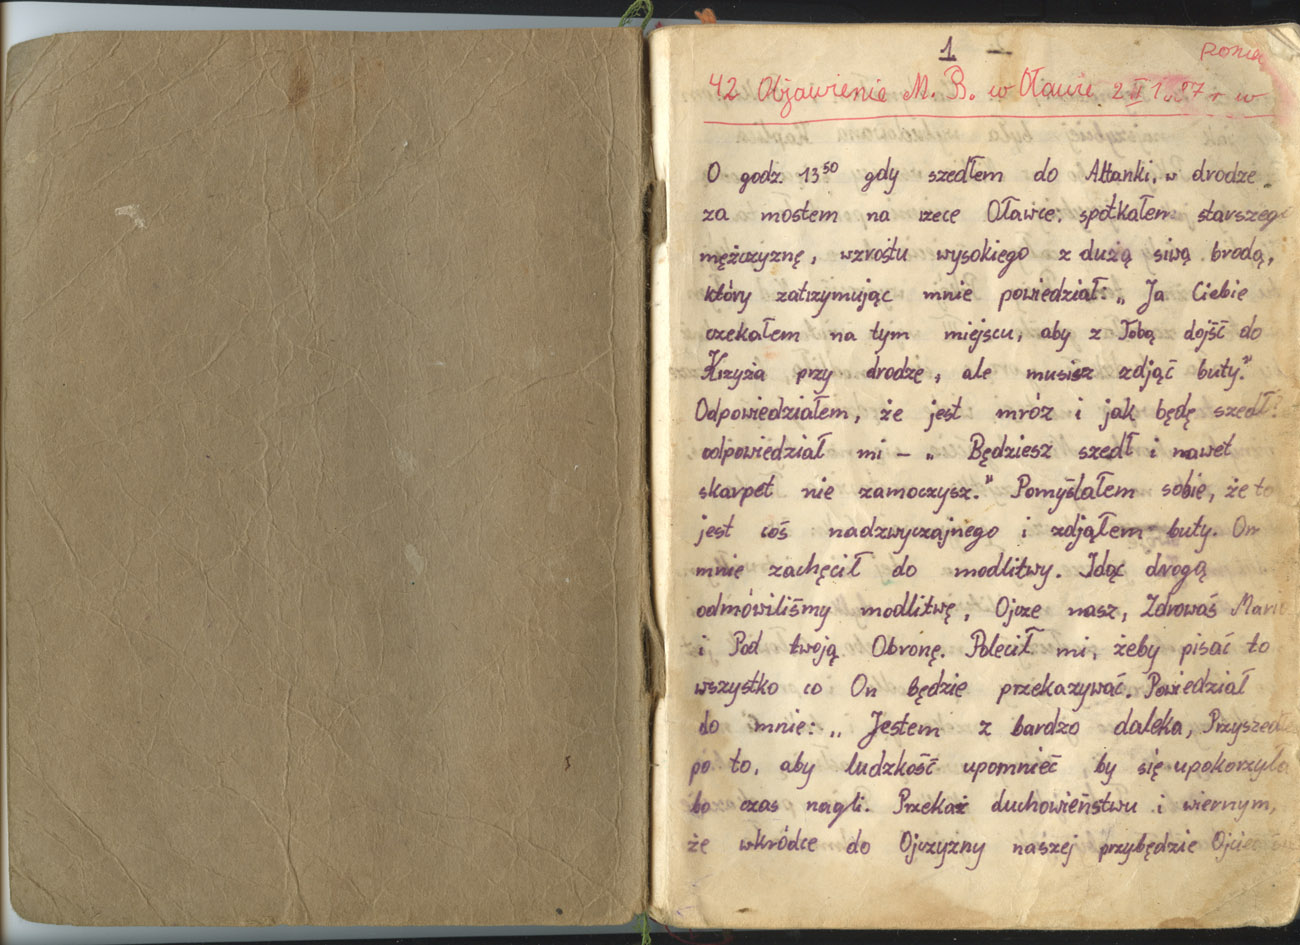 1 -
42 Objawienie M. B. w Oławie 2 I
O godz. 13⁵⁰ gdy szedłem do Altanki, w drodze
za mostem na rzece Oławce. spotkałem starszego
mężczyznę, wzrostu wysokiego z dużą siwą brodą,
który zatrzymując mnie powiedział: „ Ja Ciebie
czekałem na tym miejscu, aby z Tobą dojść do
Krzyża przy drodze, ale musisz zdjąć buty."
Odpowiedziałem, że jest mróz i jak będę szedł?
odpowiedział mi – „ Będziesz szedł i nawet
skarpet nie zamoczysz." Pomyślałem sobie, że to
jest coś nadzwyczajnego i zdjąłem buty. On
mnie zachęcił do modlitwy. Idąc drogą
odmówiliśmy modlitwę, Ojcze nasz, Zdrowaś Mario
i Pod twoją Obronę. Polecił mi, żeby pisać to
wszystko co On będzie przekazywać. Powiedział
do mnie: „ Jestem z bardzo daleka, Przyszedłem
po to, aby ludzkość upomnieć, by się upokorzyła
bo czas nagli. Przekaż duchowieństwu i wiernym,
że wkródce do Ojczyzny naszej przybędzie Ojciec